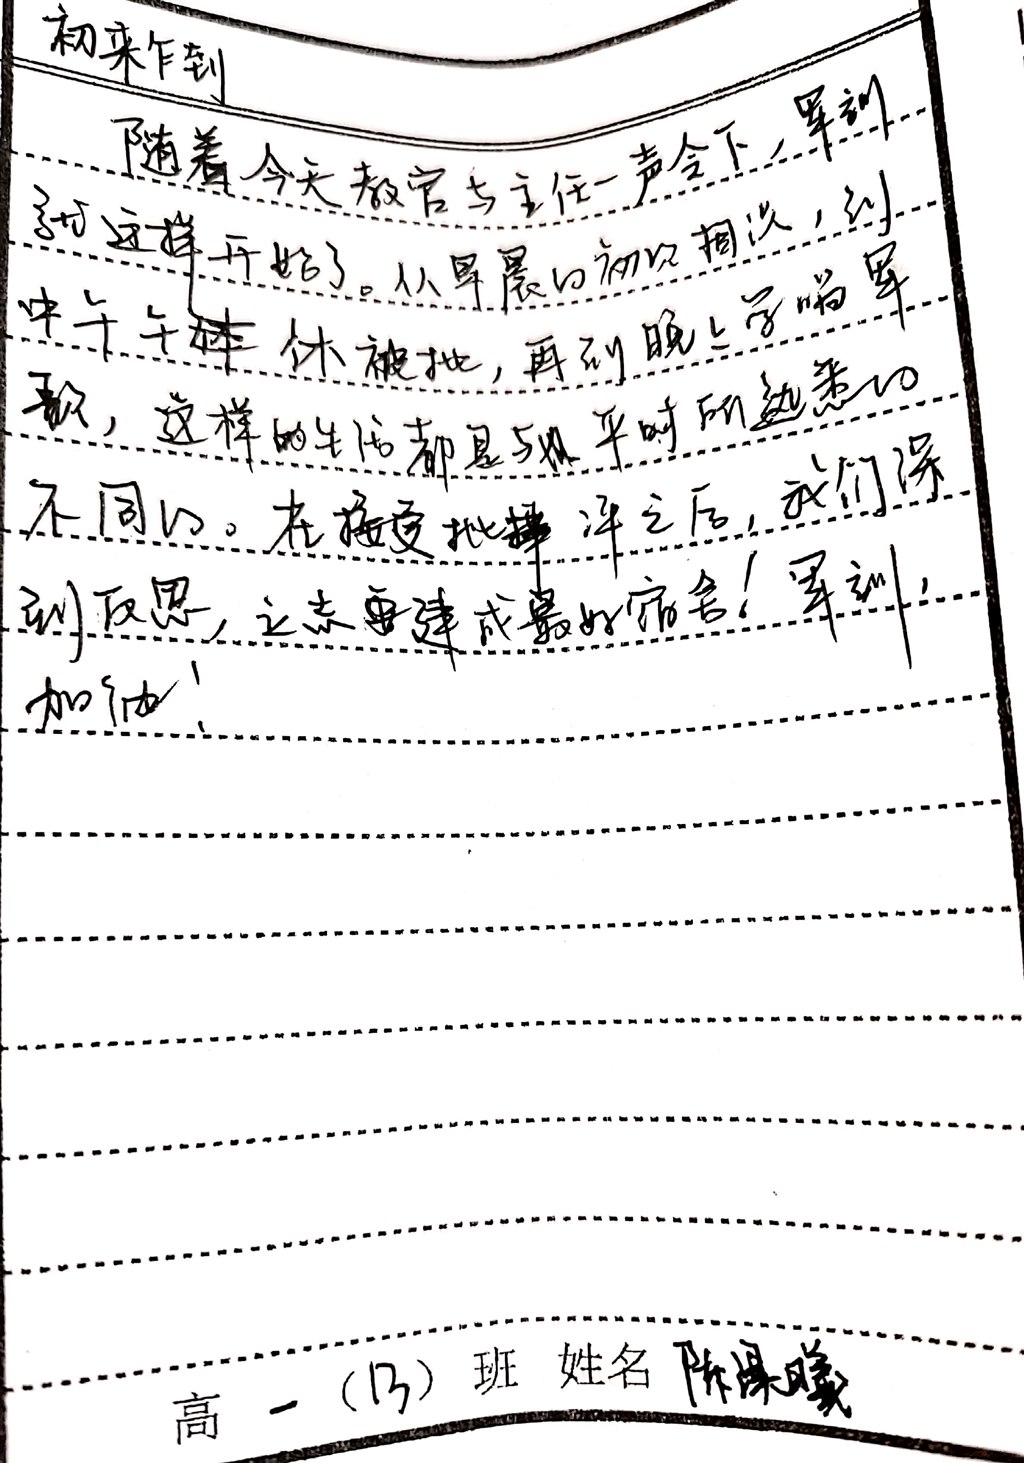 初来乍到
随着今天教官与主任一声令下，军训
就这样开始了。从早晨的初次相谈，到
中午午休被批，再到晚上学唱军
歌，这样的生活都是与从平时所熟悉的
不同的。在接受批评之后，我们深
刻反思，立志要建成最好宿舍！军训，
加油！
高一（13）班 姓名 陈泽曦